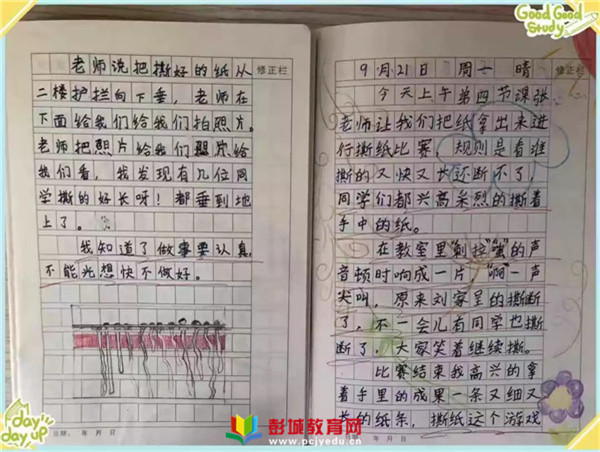 Good Good Study
老师说把撕好的纸从 修正栏
二楼护拦向下垂，老师在
下面给我们给我们拍照片。
老师把照片给我们照片给
我们看，我发现有几位同
学撕的好长呀！都垂到地
上了。
我知道了做事要认真
不能光想快不做好。
年 月 日
9月21日 周一 晴 修正栏
今天上午第四节课张
老师让我们把纸拿出来进
行撕纸比赛 规则是看谁
撕的又快又长还断不了，
同学们都兴高采烈的撕着
手中的纸。
在教室里 的声
音顿时响成一片“啊一声
尖叫，原来刘家呈的撕断
了，不一会儿有同学也撕
断了，大家笑着继续撕。
比赛结束我高兴的拿
着手里的成果一条又细又
长的纸条，撕纸这个游戏
年 月 日
day day up
彭城教育网
www.pcjyedu.cn